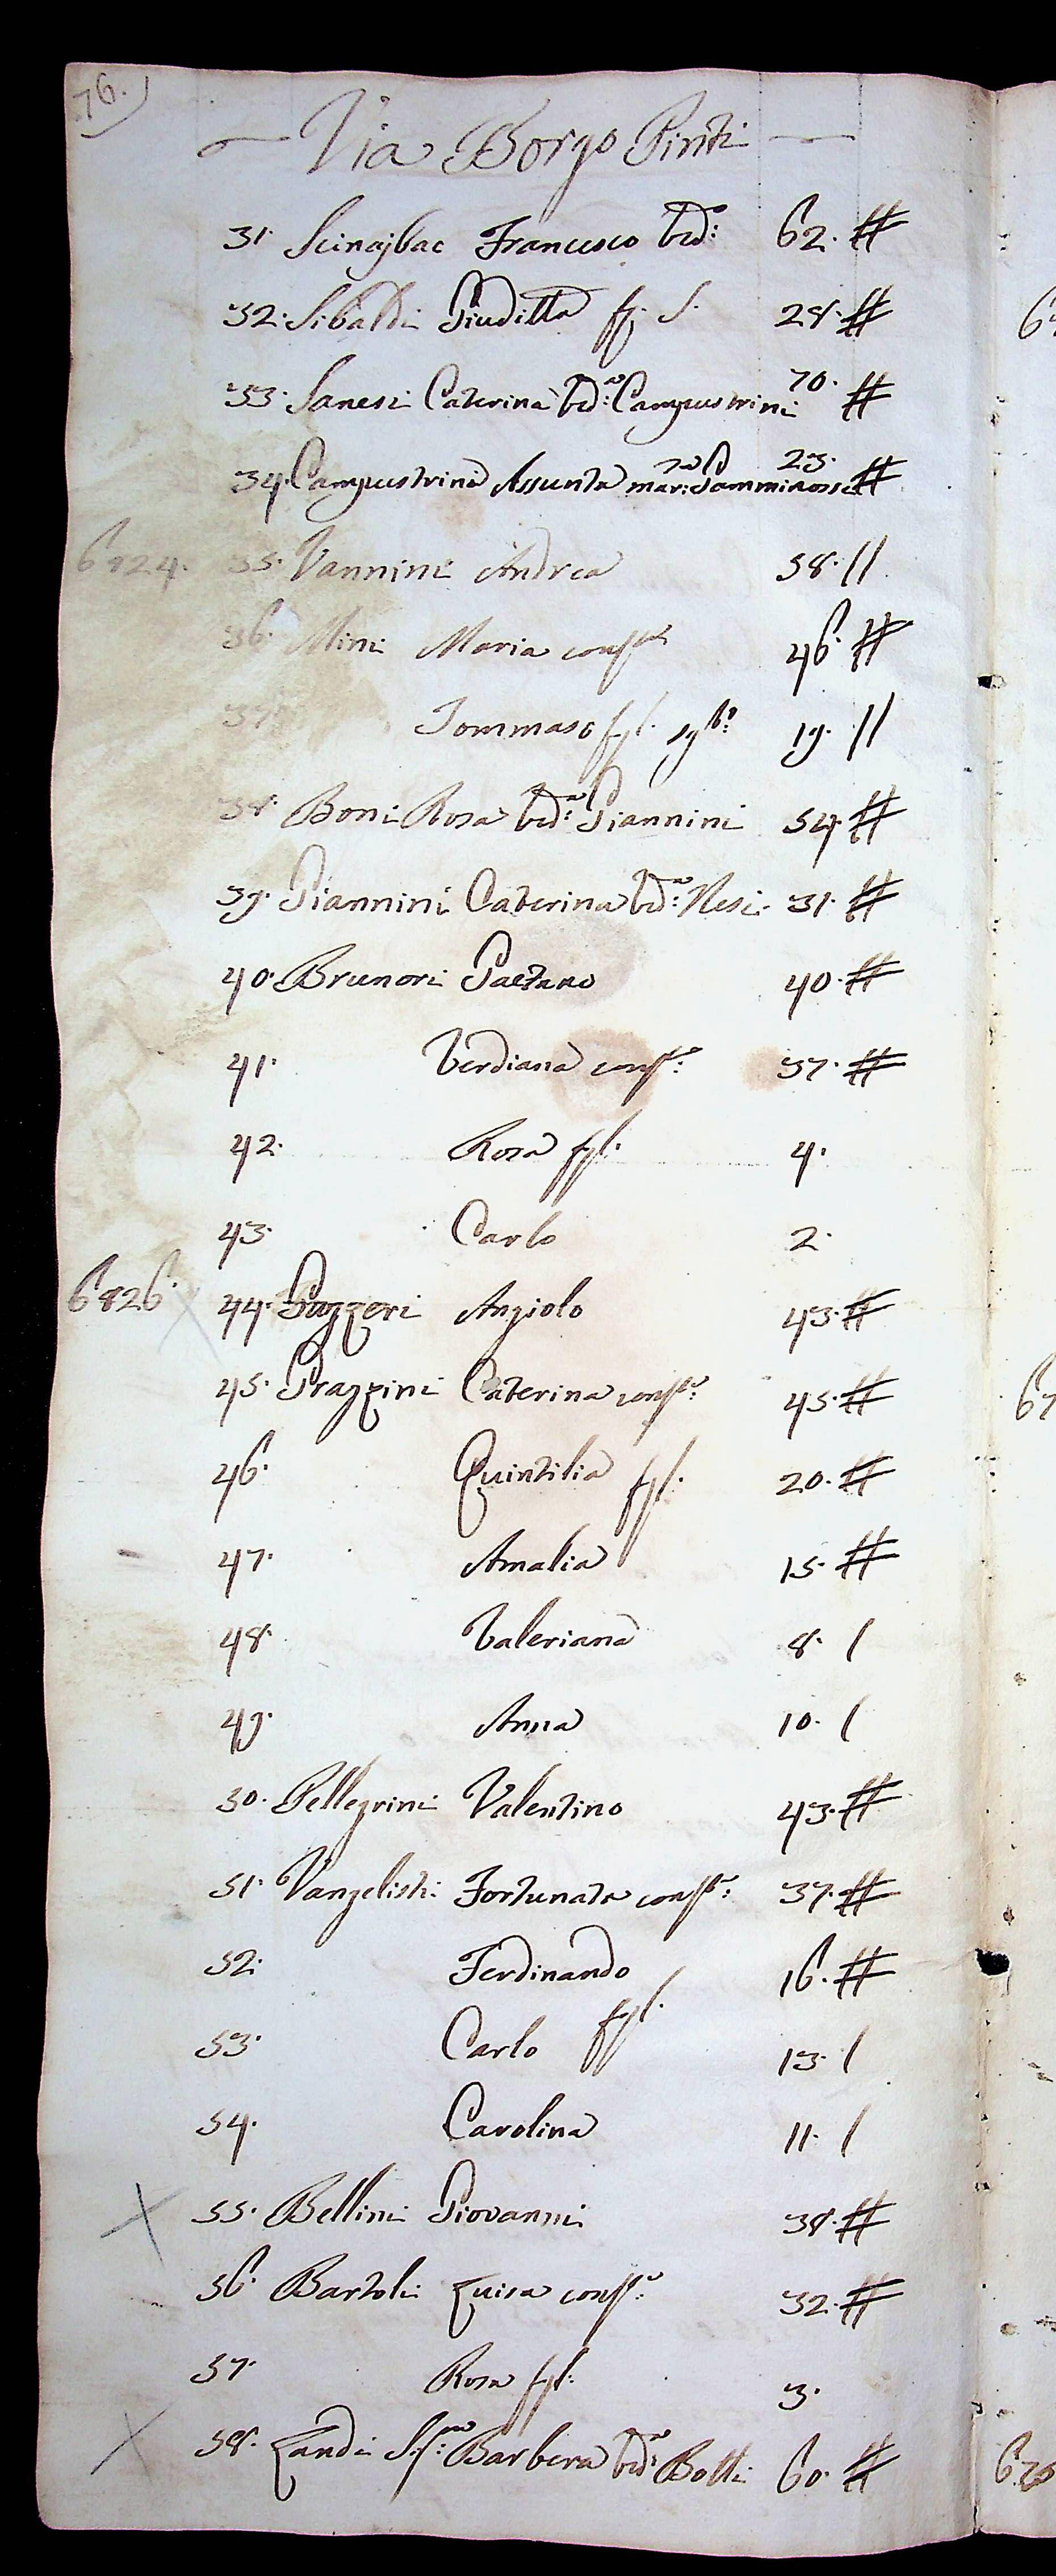 76.
Via Borgo Pinti
31. Scinajbac Francesco ved:º 62. #
32. Sibaldi Giuditta fi. S. 28. #
33. Sanesi Caterina ved:ª Campustrini 70. #
34. Campustrini Assunta mar:ta Gamminossi 23. #
6824. 35. Vannini Andrea 58. //
36. Mini Maria conste 46. #
37. Tommaso fgl. 19. //
38. Boni Rosa ved:ª Giannini 54. #
39. Giannini Caterina ved:ª Nesi 31. #
40. Brunori Gaetano 40. #
41. Verdiana conste: 37. #
42. Rosa fgl. 4.
43. Carlo 2.
6826. X 44. Gazzeri Angiolo 43. #
45. Grazzini Caterina conste: 45. #
46. Quintilia fgl. 20. #
47. Amalia 15. #
48. Valeriana 8. /
49. Anna 10. /
50. Pellegrini Valentino 43. #
51. Vangelisti Fortunata conste: 37. #
52. Ferdinando 16. #
53. Carlo fgl. 13. /
54. Carolina 11. /
X 55. Bellini Giovanni 38. #
56. Bartoli Luisa conste: 32. #
57. Rosa fgl: 3.
X 58. Landi Barbera ved:ª Botti 60. #